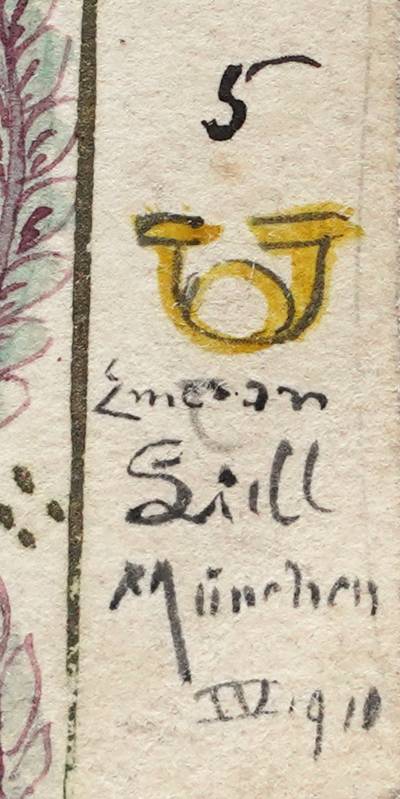 5
Emeran
Sill
München
IV.910